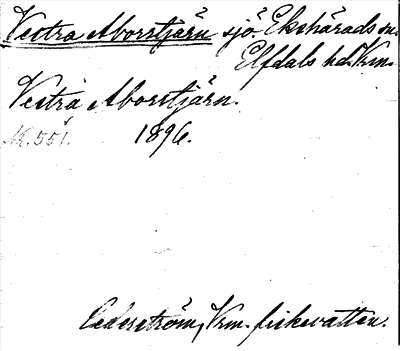 Vestra Aborrtjärn sjö. Ekshärads sn.
Elfdals hd. Vrm.
Vestra Aborrtjärn.
1896.
Cederström, Vrm. fiskevatten.